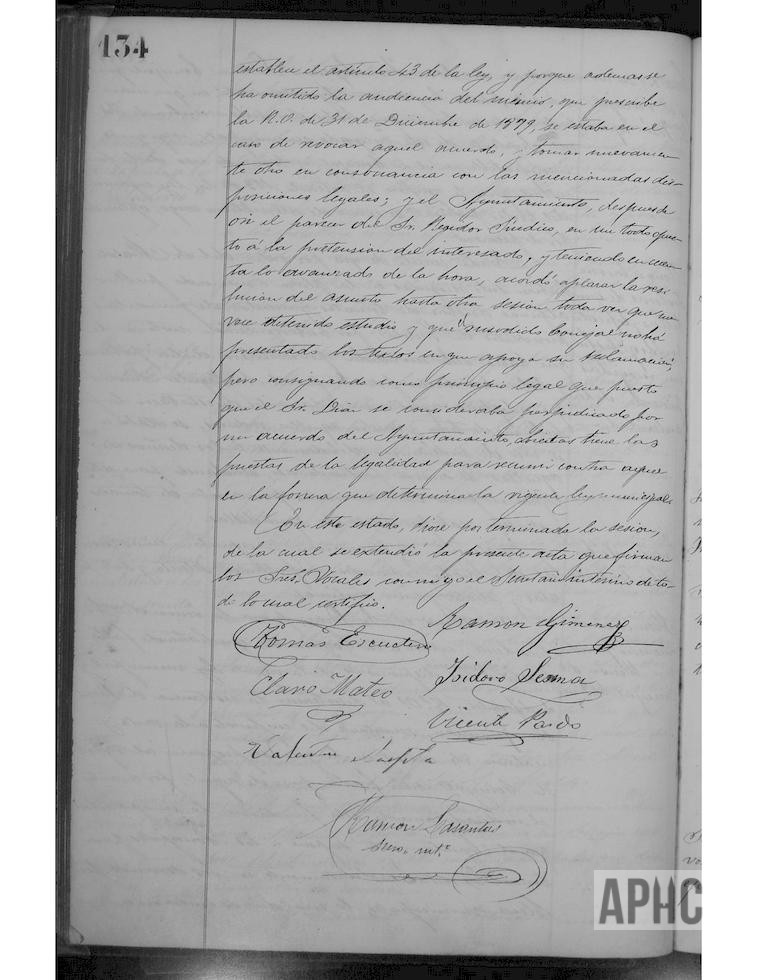 134
establece el artículo 43 de la ley, y porque ademas se
ha omitido la audiencia del mismo, que prescribe
la R.O. de 31 de Diciembre de 1879, se estaba en el
caso de revocar aquel acuerdo, y tomar nuevamen-
te otro en consonancia con las mencionadas dis-
posiciones legales; y el Ayuntamiento, despues de
oir el parecer del Sr. Regidor Síndico, en un todo opues-
to á la pretension del interesado, y teniendo en cuen-
ta lo avanzado de la hora, acordó aplazar la reso-
lucion del asunto hasta otra sesion toda vez que me-
rece detenido estudio y que susodicho Concejal no há
presentado los textos en que apoya su reclamación,
pero consignando como principio legal que puesto
que el Sr. Diaz se consideraba perjudicado por
un acuerdo del Ayuntamiento, abiertas tiene las
puertas de la legalidad para recurrir contra aquel
en la forma que determina la vigente ley municipal.
En este estado, diose por terminada la sesion,
de la cual se extendió la presente acta que firman
los Sres. Vocales conmigo el Secretario interino de to-
do lo cual certifico.
Ramon Gimenez
Tomás Escudero
Isidoro Serna
Claro Mateo
Vicente Pardo
Valentin
Ramon Lasantas
Srio. int.º
APHC